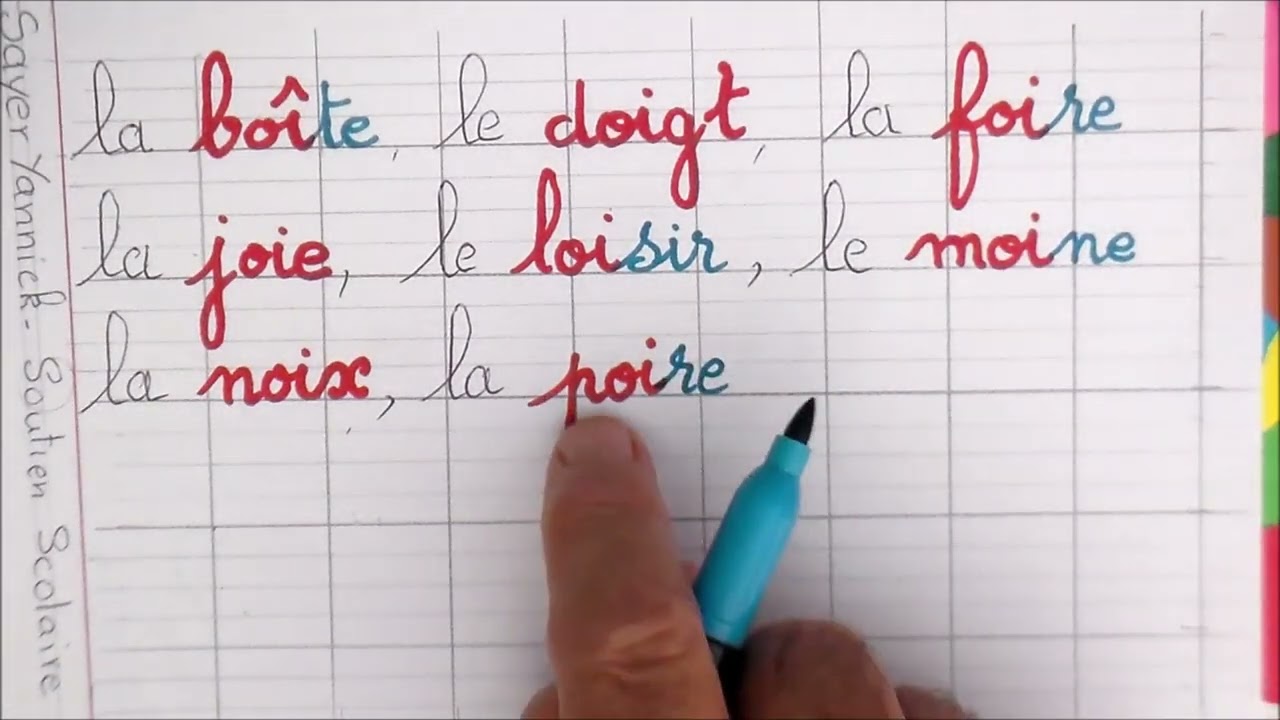 la boîte, le doigt, la foire
la joie, le loisir, le moine
la noix, la poire
Sayer Yannick - Soutien Scolaire